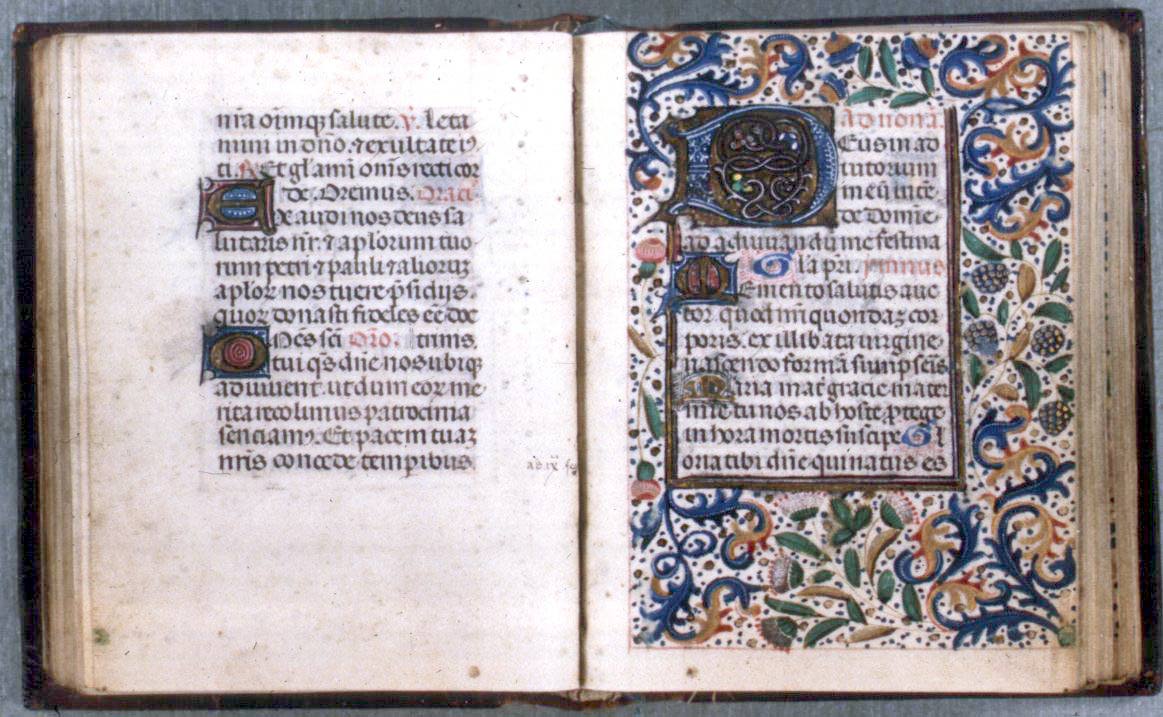 nr̃a oim̃qȝ salute. ℣. Leta
mini in dño. ⁊ exultate iꝰ
ti. ℟ Et glami om̃s recti cor
de. Oremus. Oraci
Exaudi nos deus sa
lutaris nr̃. ⁊ aplorum tuo
rum petri ⁊ pauli ⁊ aliorum
aplor nos tuere p̃sidijs.
quoꝝ donasti fideles eẽ doc
Om̃s sc̃i Orõ. trinis.
tui qs dñe nos ubiqȝ
adiuuent. ut dum eor me
rita recolimus patrocinia
senciamꝰ. Et pacem tuaȝ
nr̃is concede tempibus.
Ad nonã.
Deus in ad
iutorium
meũ inte
de domine
ad adiuuandum me festina
Gla pri. ymnus
Memento salutis auc
tor. quod nr̃i quondaȝ cor
poris. ex illibata uirgine
nascendo formã sumpseris
Maria mat̃ gracie mater
mie tu nos ab hoste ꝓtege
in hora mortis suscipe. Gl
oria tibi dñe qui natus es